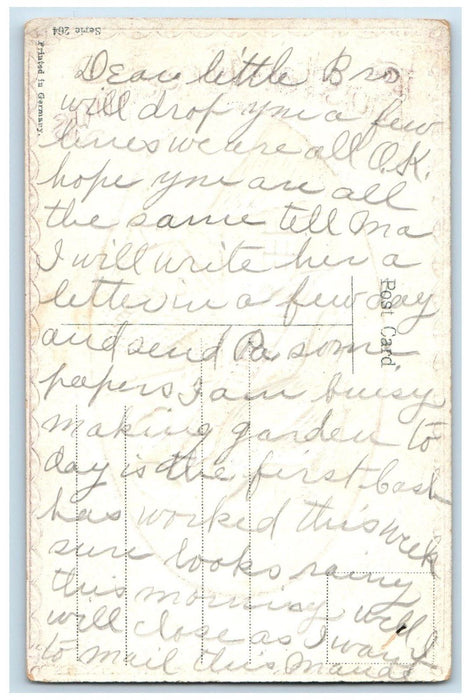 Serie 264
Printed in Germany.
Post Card.
Dear little Bro
will drop you a few
lines we are all O.K.
hope you are all
the same tell Ma
I will write her a
letter in a few day
and send Pa some
papers I am busy
making garden to
day is the first
has worked this week
sure looks rainy
this morning will
will close as I want
to mail this Maude